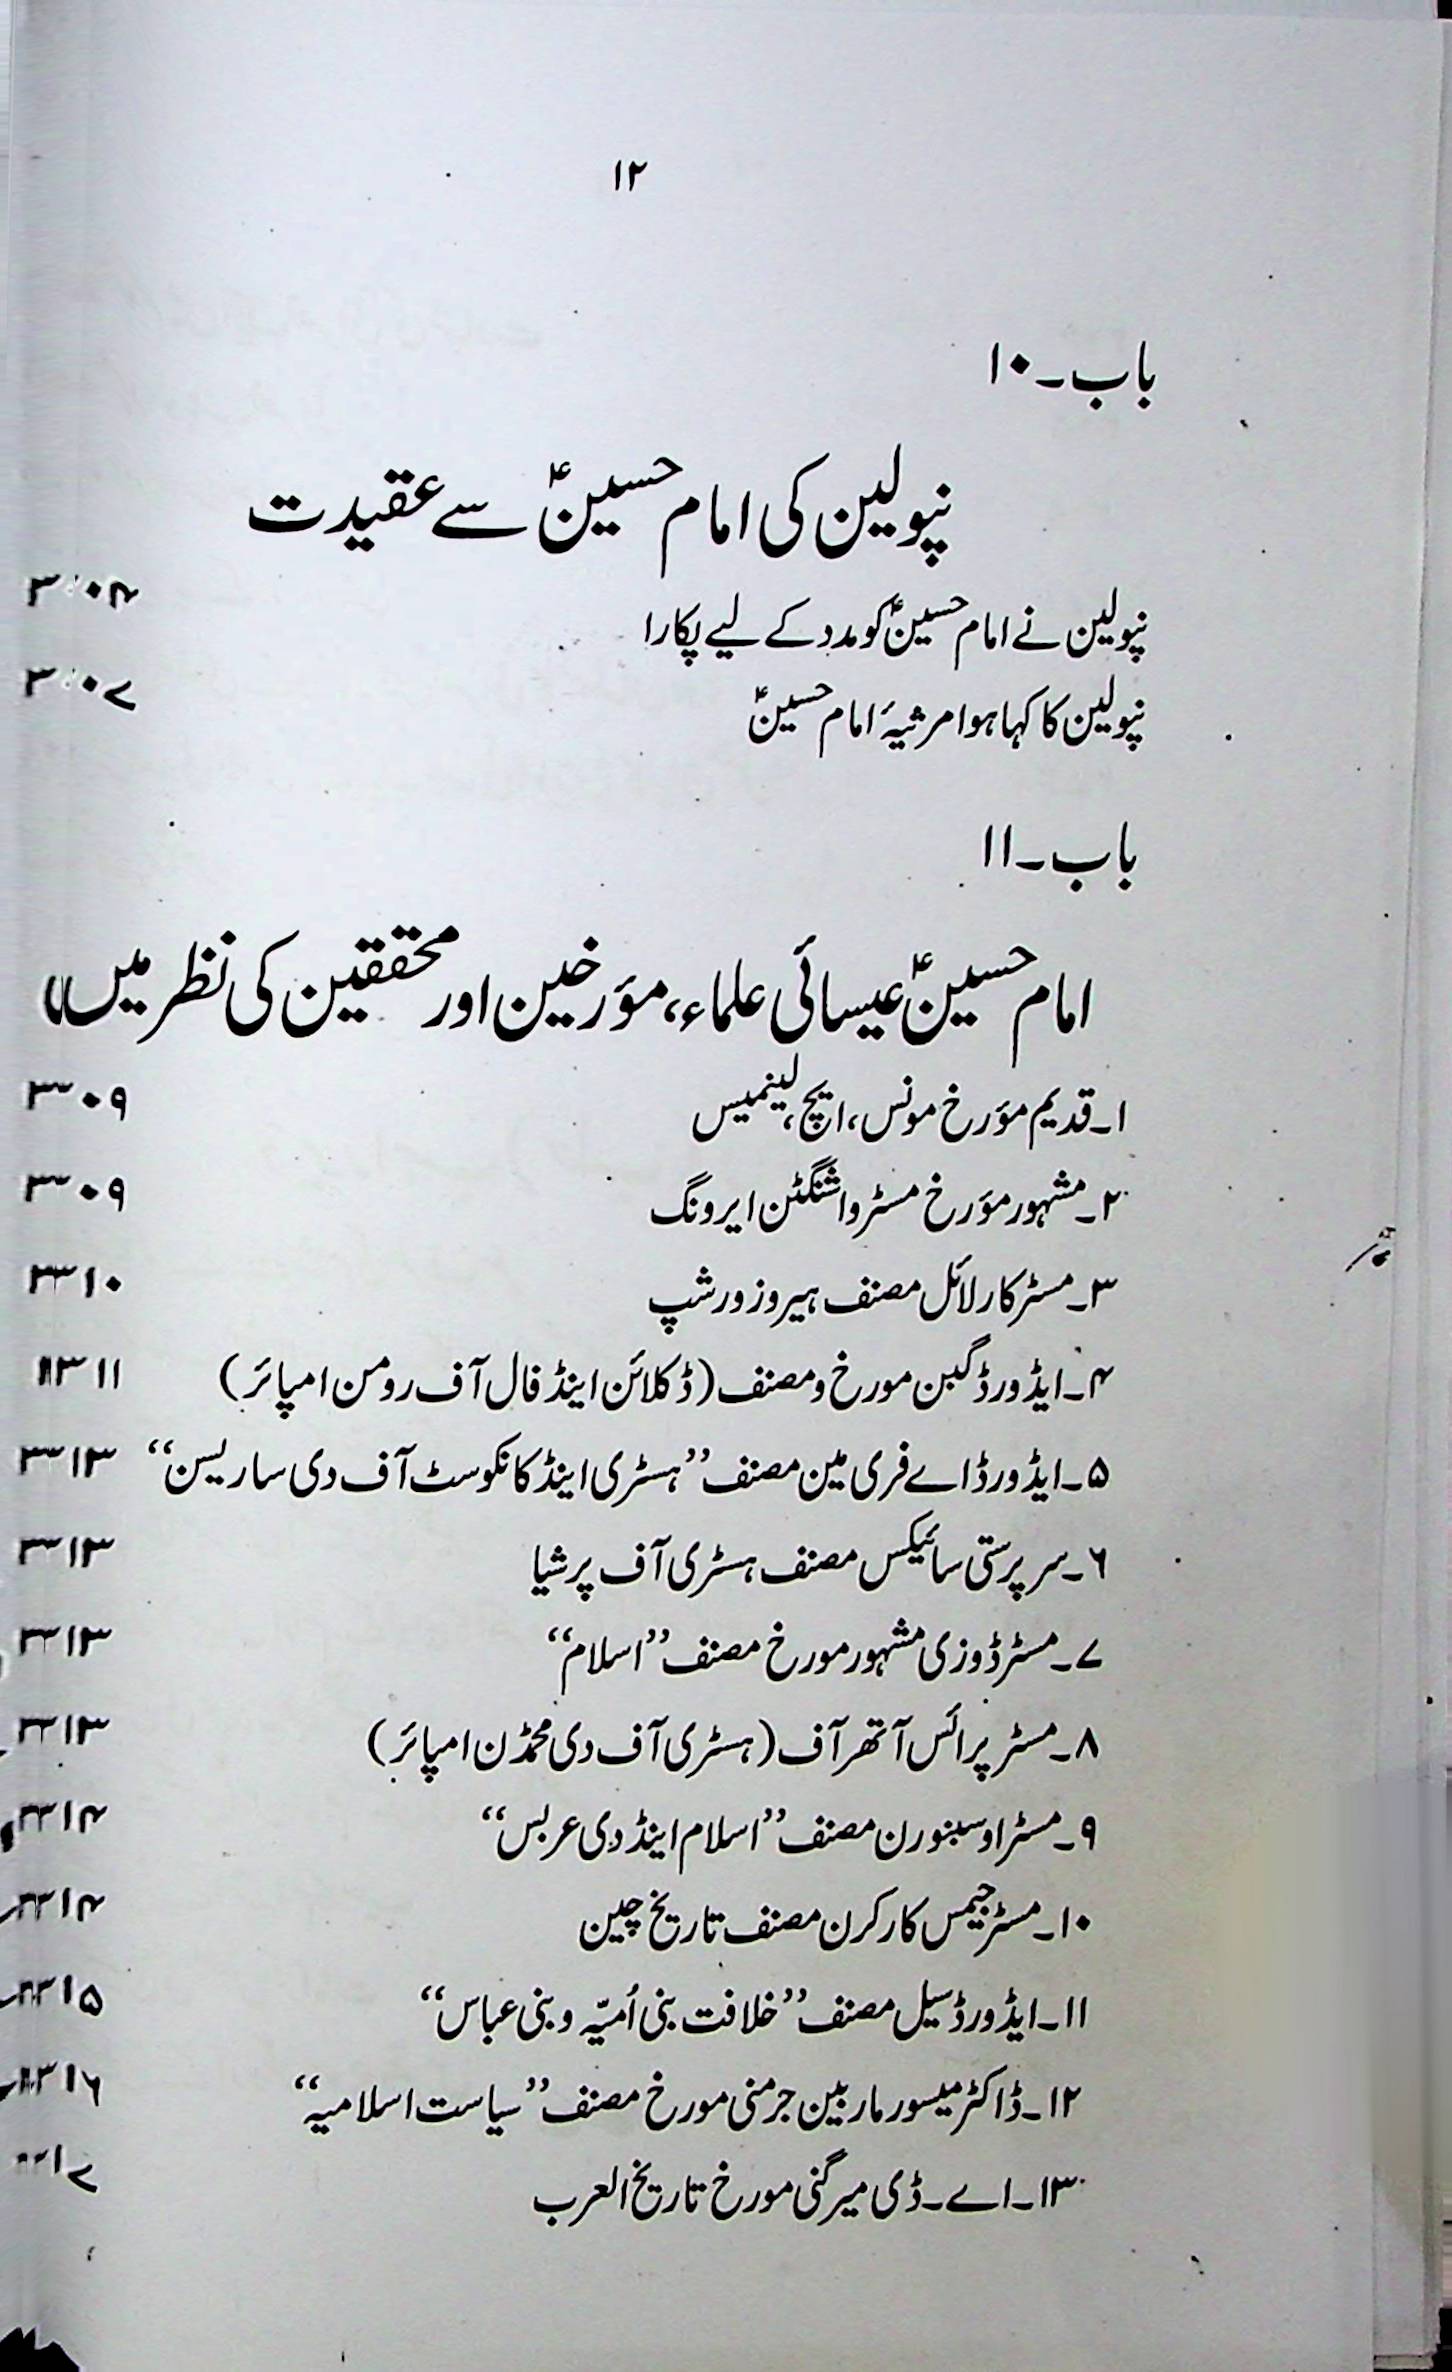 ۱۲
باب۔۱۰
نپولین کی امام حسینؑ سے عقیدت
نپولین نے امام حسینؑ کو مدد کے لیے پکارا ۳۰۴
نپولین کا کہا ہوا مرثیۂ امام حسینؑ ۳۰۷
باب۔۱۱
امام حسینؑ عیسائی علماء، مؤرخین اور محققین کی نظر میں
۱۔قدیم مؤرخ مونس، ایچ، لینمیس ۳۰۹
۲۔مشہور مؤرخ مسٹر واشنگٹن ایرونگ ۳۰۹
۳۔مسٹر کارلائل مصنف ہیروز ورشپ ۳۱۰
۴۔ایڈورڈ گبن مورخ و مصنف (ڈکلائن اینڈ فال آف رومن امپائر) ۳۱۱
۵۔ایڈورڈ اے فری مین مصنف ”ہسٹری اینڈ کانکوسٹ آف دی ساریسن“ ۳۱۳
۶۔سر پرستی سائیکس مصنف ہسٹری آف پرشیا ۳۱۳
۷۔مسٹر ڈوزی مشہور مورخ مصنف ”اسلام“ ۳۱۳
۸۔مسٹر پرائس آتھر آف (ہسٹری آف دی محمڈن امپائر) ۳۱۳
۹۔مسٹر اوسبنورن مصنف ”اسلام اینڈ دی عربس“ ۳۱۴
۱۰۔مسٹر جیمس کارکرن مصنف تاریخ چین ۳۱۴
۱۱۔ایڈورڈ سیل مصنف ”خلافت بنی اُمیّہ و بنی عباس“ ۳۱۵
۱۲۔ڈاکٹر میسور ماربین جرمنی مورخ مصنف ”سیاست اسلامیہ“ ۳۱۶
۱۳۔اے۔ڈی میرگنی مورخ تاریخ العرب ۳۱۷